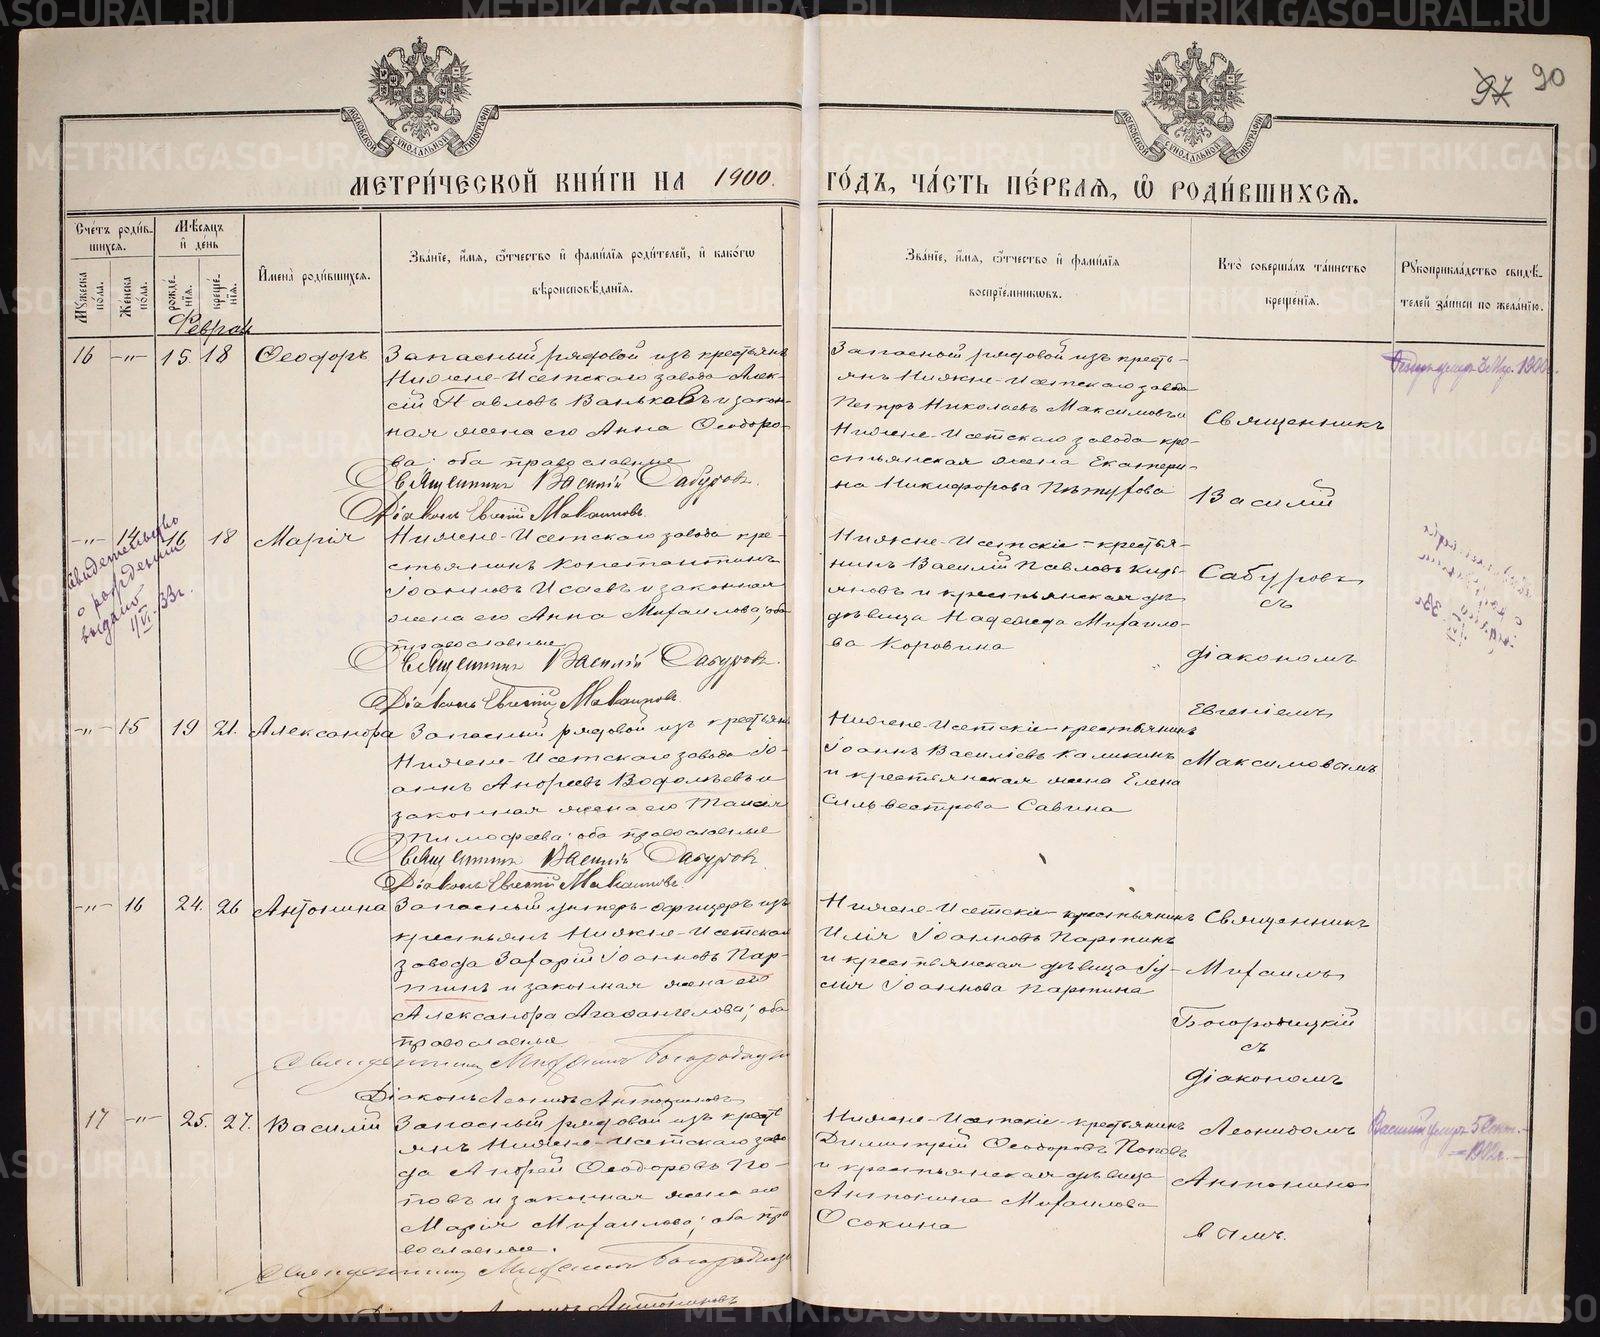 97 90
МЕТРИ́ЧЕСКОЙ КНИ́ГИ НА 1900. ГО́ДЪ, ЧА́СТЬ ПЕ́РВАѦ, Ѽ РОДИ́ВШИХСѦ.
Счетъ роди́вшихся.
Мꙋжеска по́ла.
Же́нска по́ла.
Мѣсяцъ и день
рожде́нїя.
креще́нїя.
Имена̀ роди́вшихся.
Зва́нїе, и́мя, ѻ́тчество и фами́лїя роди́телей, и како́гѡ
вѣроисповѣ́данїя.
Зва́нїе, и́мя, ѻ́тчество и фами́лїя
воспрїе́мникѡвъ.
Кто̀ соверша́лъ та́инство
креще́нїя.
Рꙋкоприкла́дство свидѣ́-
телей за́писи по жела́нїю.
Феврал
16 -„- 15. 18 Ѳеодоръ
Запасный рядовой изъ крестьянъ
Нижне-Исетскаго завода Алек-
сій Павловъ Ваньковъ и закон-
ная жена его Анна Ѳеодоро-
ва; оба православные
Священникъ Василій Сабуровъ.
Діаконъ Евгеній Максимовъ.
Запасной рядовой изъ кресть-
янъ Нижне-Исетскаго завода
Петръ Николаевъ Максимовъ и
Нижне-Исетскаго завода кре-
стьянская жена Екатери-
на Никифорова
Священникъ
Василій
Сабуровъ
съ
діакономъ
Евгеніемъ
Максимовымъ
-„- 14 16 18 Марія
Свидетельство
о рождении
выдано
1/VI 33г.
Нижне-Исетскаго завода кре-
стьянинъ Константинъ
Іоанновъ Исаевъ и законная
жена его Анна Михаилова; оба
православные
Священникъ Василій Сабуровъ.
Діаконъ Евгеній Максимовъ
Нижне-Исетскіе крестья-
нинъ Василій Павловъ
и крестьянская дѣ
дѣвица Надежда Михаило-
ва Коровина
-„- 15 19 21. Александра
Запасный рядовой изъ крестьянъ
Нижне-Исетскаго завода Іо-
аннъ Андреевъ и
законная жена его Таисія
Тимофеева; оба православные
Священникъ Василій Сабуровъ
Діаконъ Евгеній Максимовъ.
Нижне-Исетскіе крестьянинъ
Іоаннъ Василіевъ Калининъ
и крестьянская жена Елена
Сильвестрова Савина
-„- 16 24. 26 Антонина
Запасный унтеръ-офицеръ изъ
крестьянъ Нижне-Исетскаго
завода Захарій Іоанновъ Пар-
тинъ и законная жена его
Александра Агафангелова; оба
православные
Священникъ Михаилъ Богородицкій
Діаконъ Леонидъ Антониновъ
Нижне-Исетскіе крестьянинъ
Илія Іоанновъ Партинъ
и крестьянская дѣвица Іу-
лія Іоаннова Партина
Священникъ
Михаилъ
Богородицкій
съ
діакономъ
Леонидомъ
Антонино
вымъ.
17 -„- 25. 27. Василій
Запасный рядовой изъ кресть
янъ Нижне-Исетскаго заво
да Андрей Ѳеодоровъ По-
повъ и законная жена его
Марія Михаилова; оба пра
вославные.
Священникъ Михаилъ Богородицкій
Діаконъ Леонидъ Антониновъ
Нижне-Исетскіе крестьянинъ
Димитрій Ѳеодоровъ Поповъ
и крестьянская дѣвица
Антонина Михаилова
Осокина
METRIKI.GASO-URAL.RU